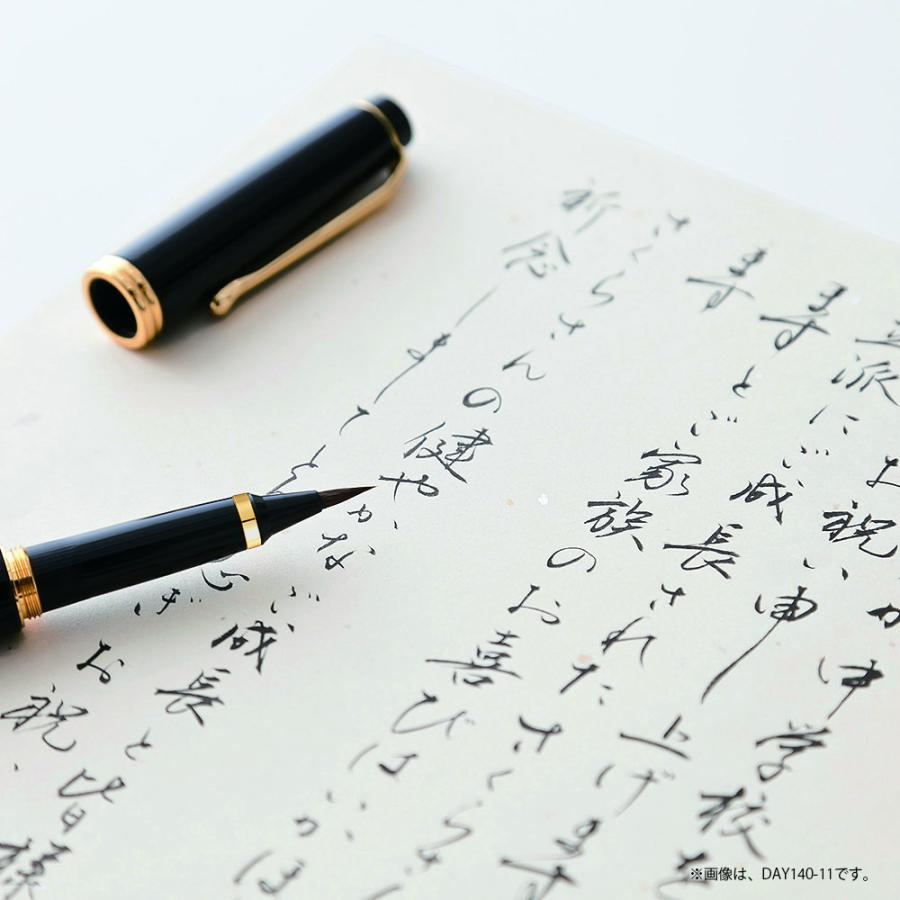 が中学校を
お祝い申し上げます
立派にご成長されたさくらさ
ますとご家族のお喜びはいかほ
ます
さくらさんの健やかなご成長と皆様
祈念しまして
ずお祝い
※画像は、DAY140-11です。